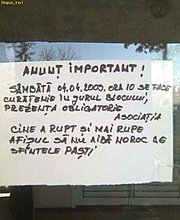 Hopa.ro!
ANUNȚ IMPORTANT!
SÂMBĂTĂ 04.04.2009. ORA 10 SE FACE
CURĂȚENIE ÎN JURUL BLOCULUI,
PREZENȚA OBLIGATORIE
ASOCIAȚIA
CINE A RUPT ȘI MAI RUPE
AFIȘUL SĂ NU AIBĂ NOROC DE
SFINTELE PAȘTI